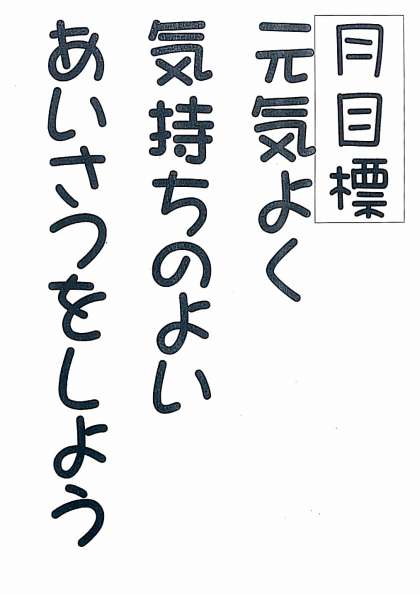 月目標
元気よく
気持ちのよい
あいさつをしよう